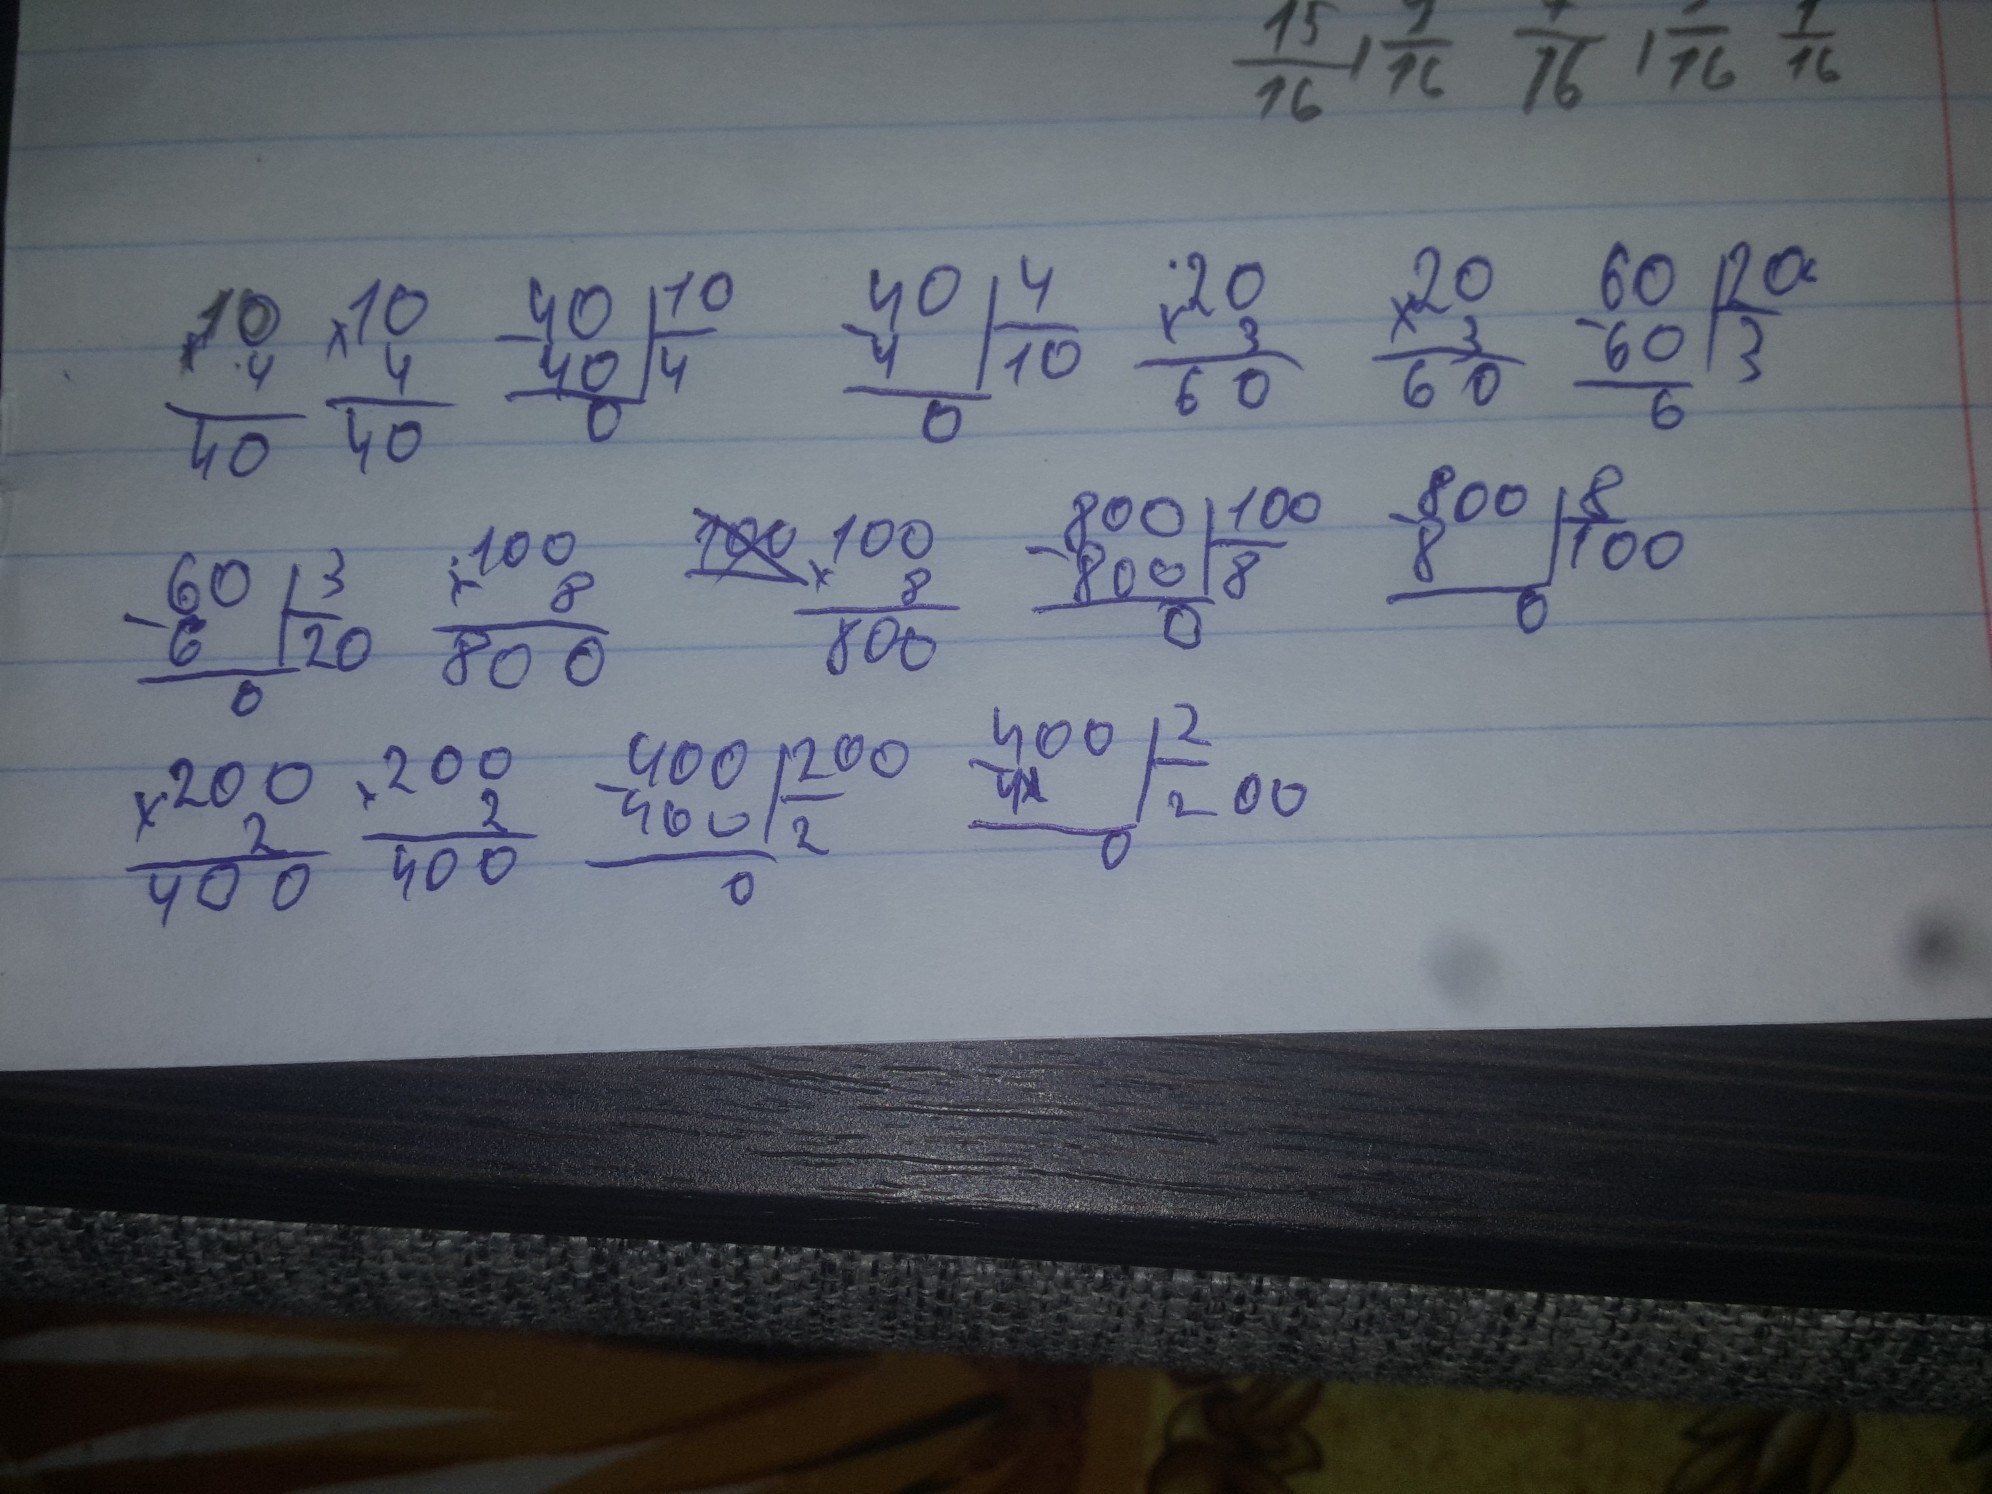 15/16, /16 /16, /16 1/16
×10 ×10 -40|10 -40|4 ×20 ×20 -60|20
4 4 40|4 4|10 3 3 60|3
40 40 0 0 60 60 6
-60|3 ×100 ×100 -800|100 -800|8
6|20 8 8 800|8 8|100
0 800 800 0 0
×200 ×200 -400|200 -400|2
2 2 400|2 4|200
400 400 0 0